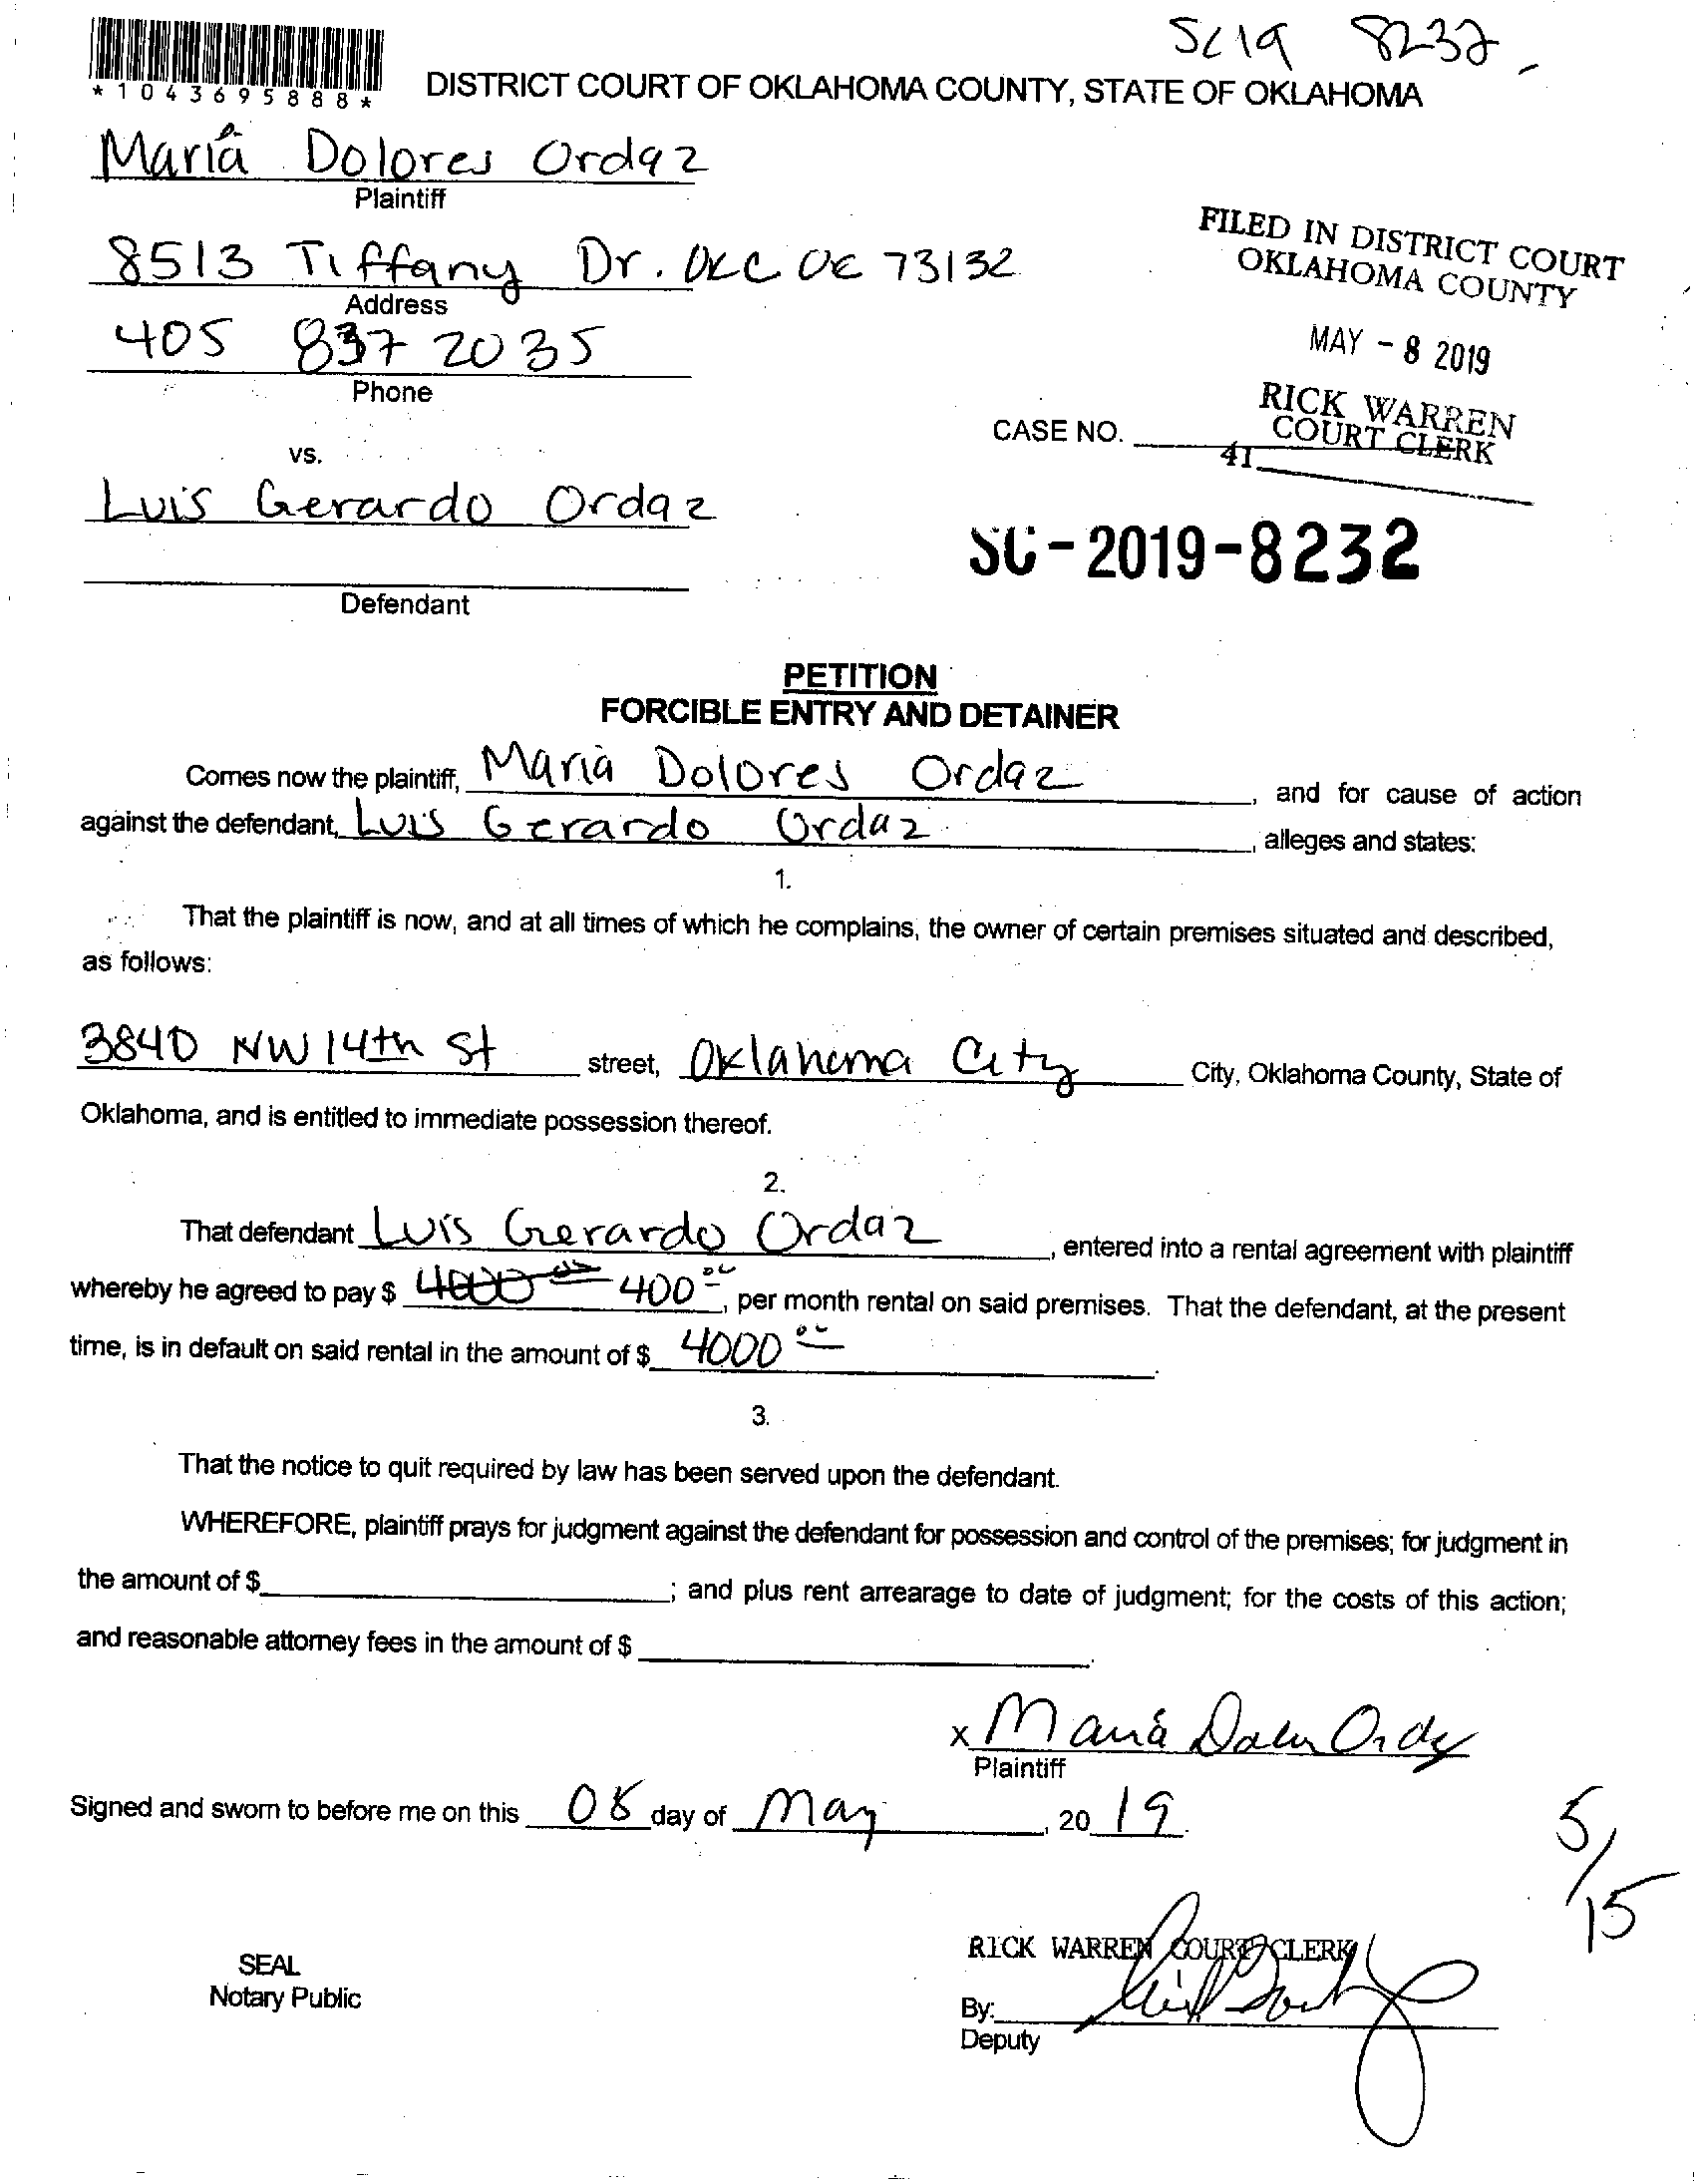 SC19 8232
*1043695888*
DISTRICT COURT OF OKLAHOMA COUNTY, STATE OF OKLAHOMA
María Dolores Ordaz
Plaintiff
8513 Tiffany Dr. OKC OK 73132
Address
405 837 2035
Phone
FILED IN DISTRICT COURT
OKLAHOMA COUNTY
MAY - 8 2019
RICK WARREN
COURT CLERK
41
CASE NO.
vs.
Luis Gerardo Ordaz
Defendant
SC-2019-8232
PETITION
FORCIBLE ENTRY AND DETAINER
Comes now the plaintiff, Maria Dolores Ordaz, and for cause of action
against the defendant, Luis Gerardo Ordaz, alleges and states:
1.
That the plaintiff is now, and at all times of which he complains, the owner of certain premises situated and described,
as follows:
3840 NW 14th St street, Oklahoma City City, Oklahoma County, State of
Oklahoma, and is entitled to immediate possession thereof.
2.
That defendant Luis Gerardo Ordaz, entered into a rental agreement with plaintiff
whereby he agreed to pay $ 4000 00 400 00, per month rental on said premises. That the defendant, at the present
time, is in default on said rental in the amount of $ 4000 00.
3.
That the notice to quit required by law has been served upon the defendant.
WHEREFORE, plaintiff prays for judgment against the defendant for possession and control of the premises; for judgment in
the amount of $ ; and plus rent arrearage to date of judgment; for the costs of this action;
and reasonable attorney fees in the amount of $ .
x Maria Ordaz
Plaintiff
Signed and sworn to before me on this 08 day of May, 2019.
5/15
RICK WARREN COURT CLERK
SEAL
Notary Public
By:
Deputy